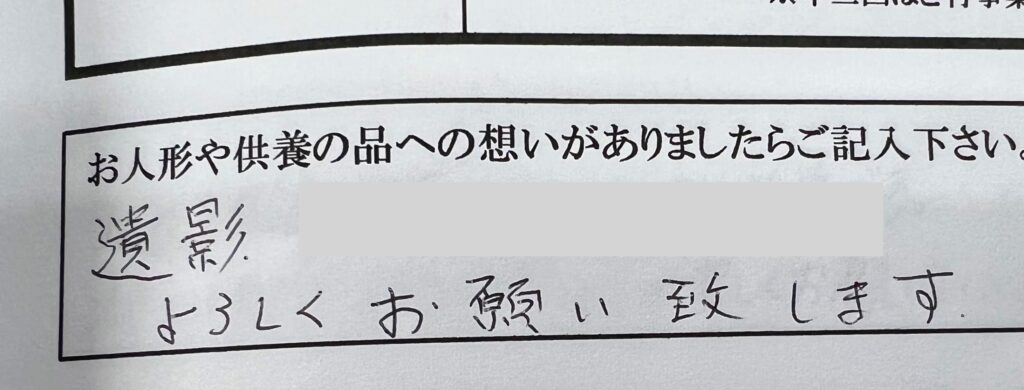 お人形や供養の品への想いがありましたらご記入下さい。
遺影
よろしくお願い致します.